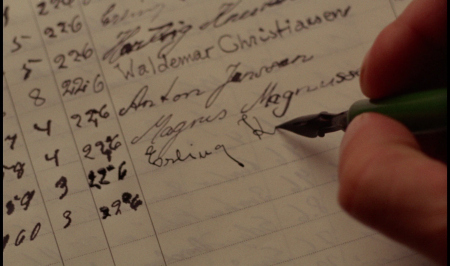 5 226
5 226
8 226 Waldemar Christiansen
4 226 Anton Jensen
4 226 Magnus Magnusse
59 3 226 Erling
160 3 226